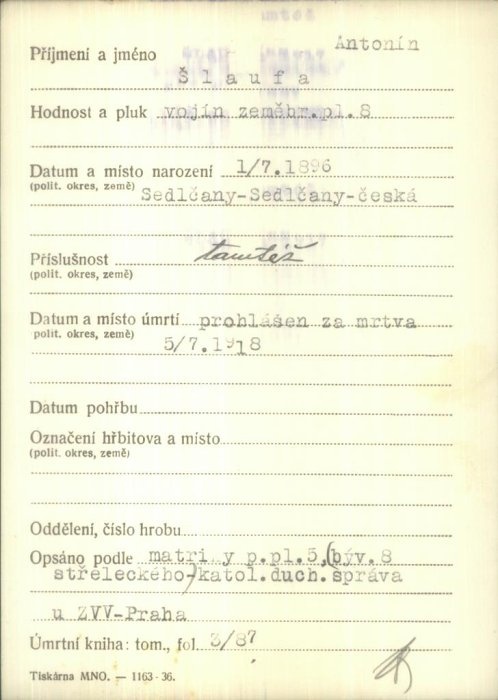 Antonín
Příjmení a jméno
Šlaufa
Hodnost a pluk vojín zeměbr.pl.8
Datum a místo narození 1/7.1896
(polit. okres, země) Sedlčany-Sedlčany-česká
Příslušnost tamtéž
(polit. okres, země)
Datum a místo úmrtí prohlášen za mrtva
polit. okres, země) 5/7.1918
Datum pohřbu
Označení hřbitova a místo
(polit. okres, země)
Oddělení, číslo hrobu
Opsáno podle matriky p.pl.5,(býv.8
střeleckého-)katol.duch.správa
u ZVV-Praha
Úmrtní kniha: tom., fol. 3/87
Tiskárna MNO. — 1163-36.